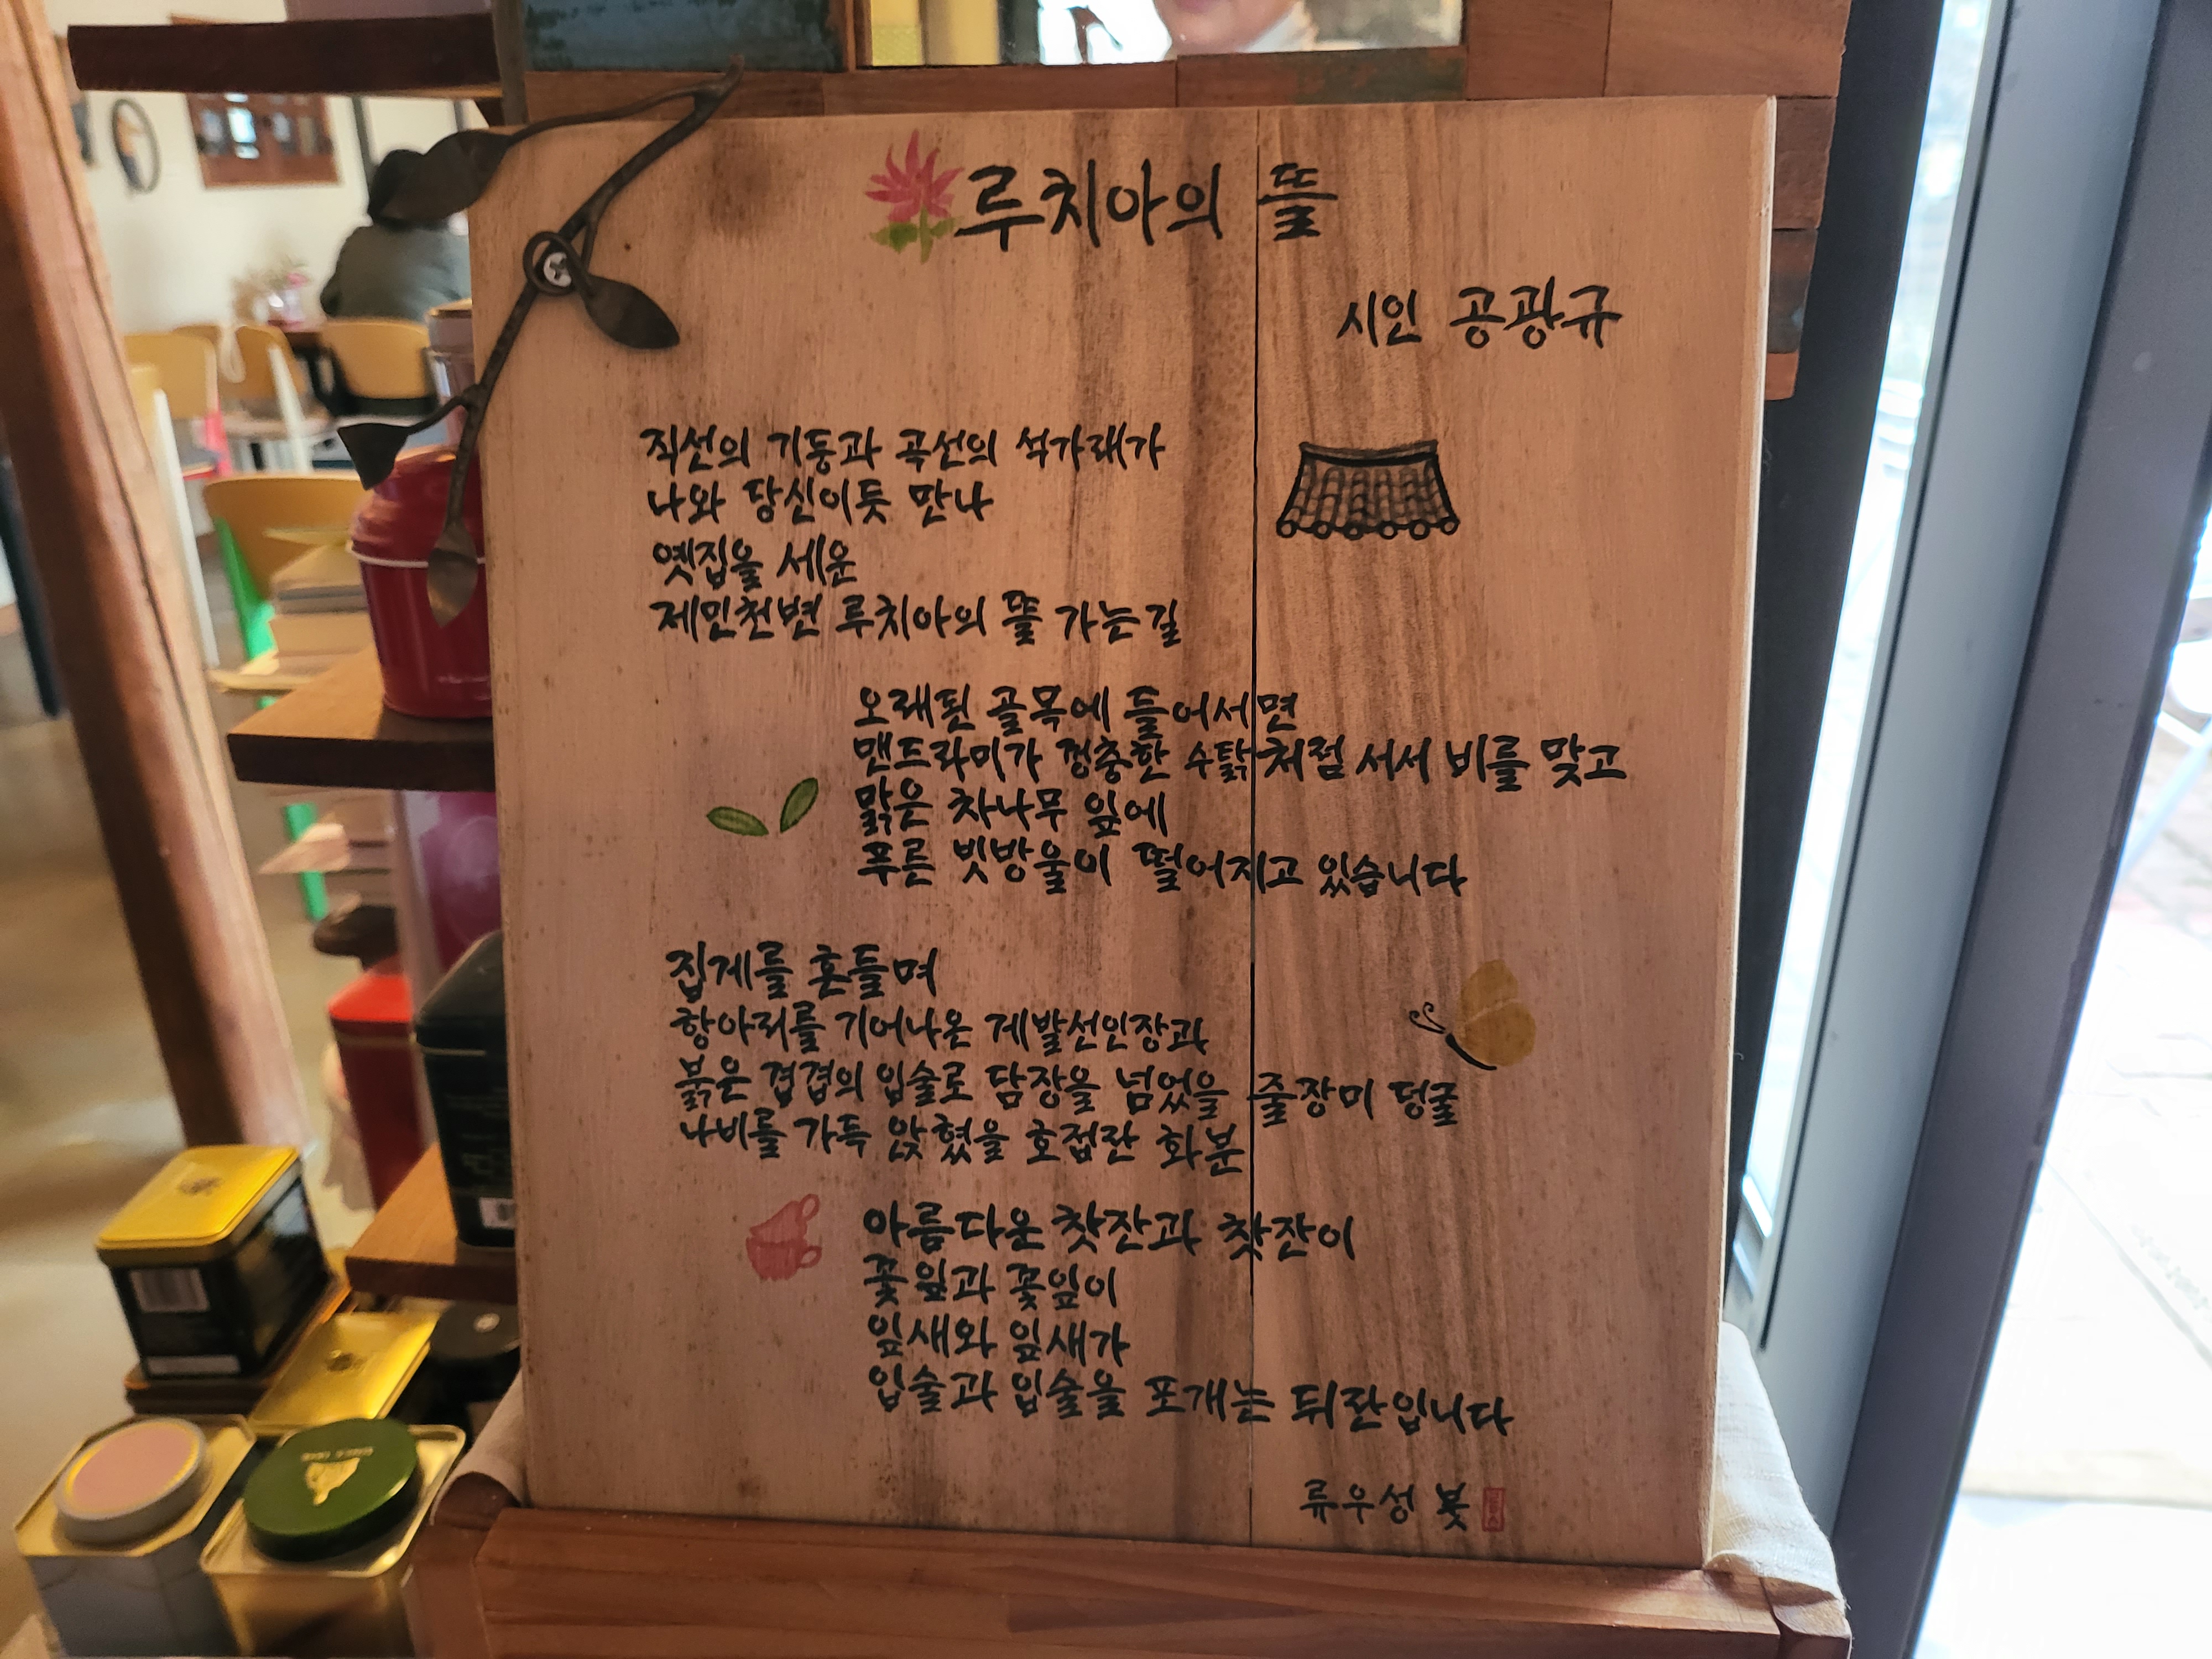 루치아의 뜰
시인 공광규
직선의 기둥과 곡선의 석가래가
나와 당신이듯 만나
옛집을 세운
제민천변 루치아의 뜰 가는길
오래된 골목에 들어서면
맨드라미가 껑충한 수탉처럼 서서 비를 맞고
맑은 차나무 잎에
푸른 빗방울이 떨어지고 있습니다
집게를 흔들며
항아리를 기어나온 게발선인장과
붉은 겹겹의 입술로 담장을 넘었을 줄장미 덩굴
나비를 가득 앉혔을 호접란 화분
아름다운 찻잔과 찻잔이
꽃잎과 꽃잎이
잎새와 잎새가
입술과 입술을 포개는 뒤란입니다
류우성 붓